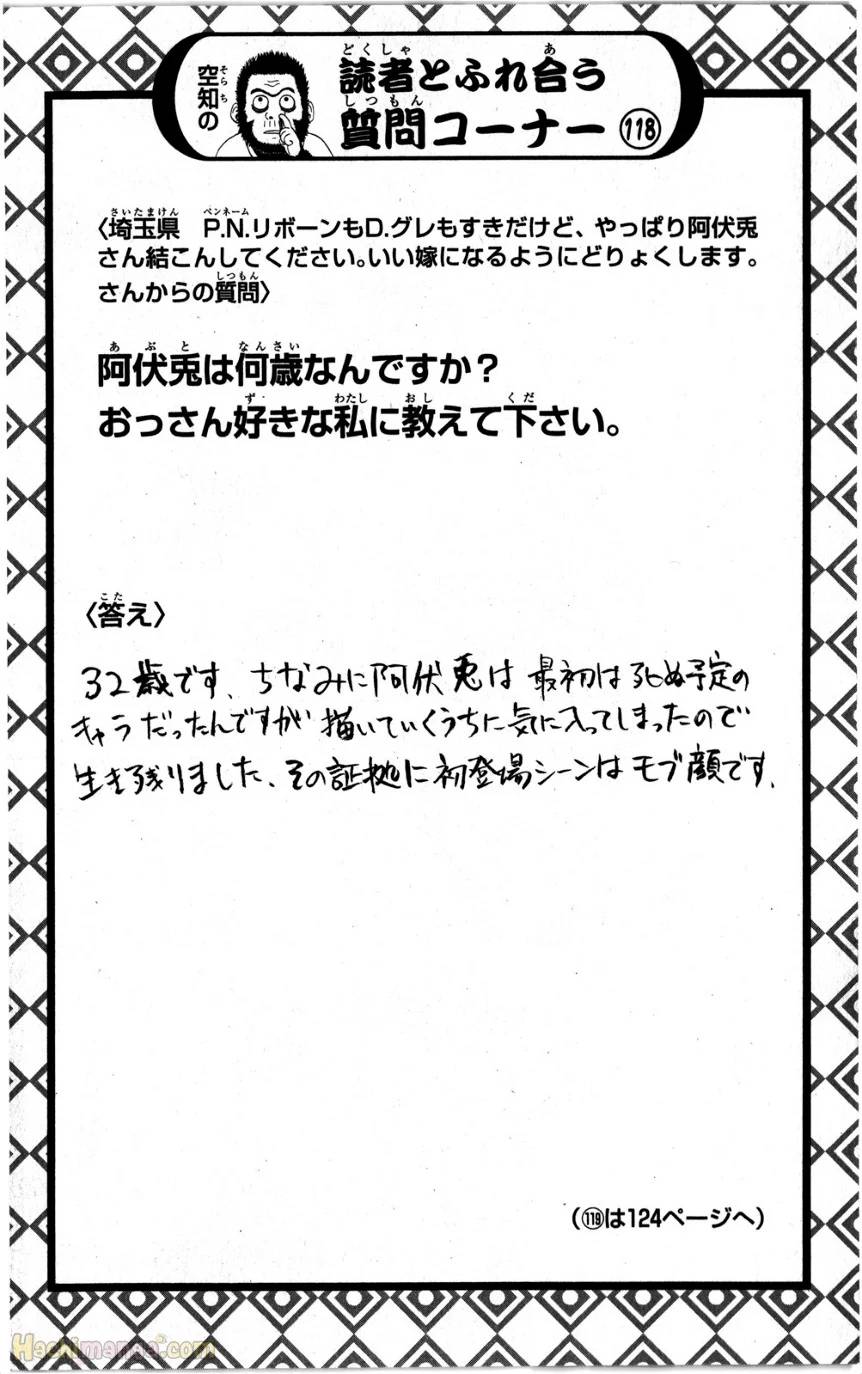 空知の
読者とふれ合う
質問コーナー 118
〈埼玉県 P.N.リボーンもD.グレもすきだけど、やっぱり阿伏兎
さん結こんしてください。いい嫁になるようにどりょくします。
さんからの質問〉
阿伏兎は何歳なんですか?
おっさん好きな私に教えて下さい。
〈答え〉
32歳です、ちなみに阿伏兎は最初は死ぬ予定の
キャラだったんですが描いていくうちに気に入ってしまったので
生き残りました、その証拠に初登場シーンはモブ顔です、
(119は124ページへ)
Hachimanga.com